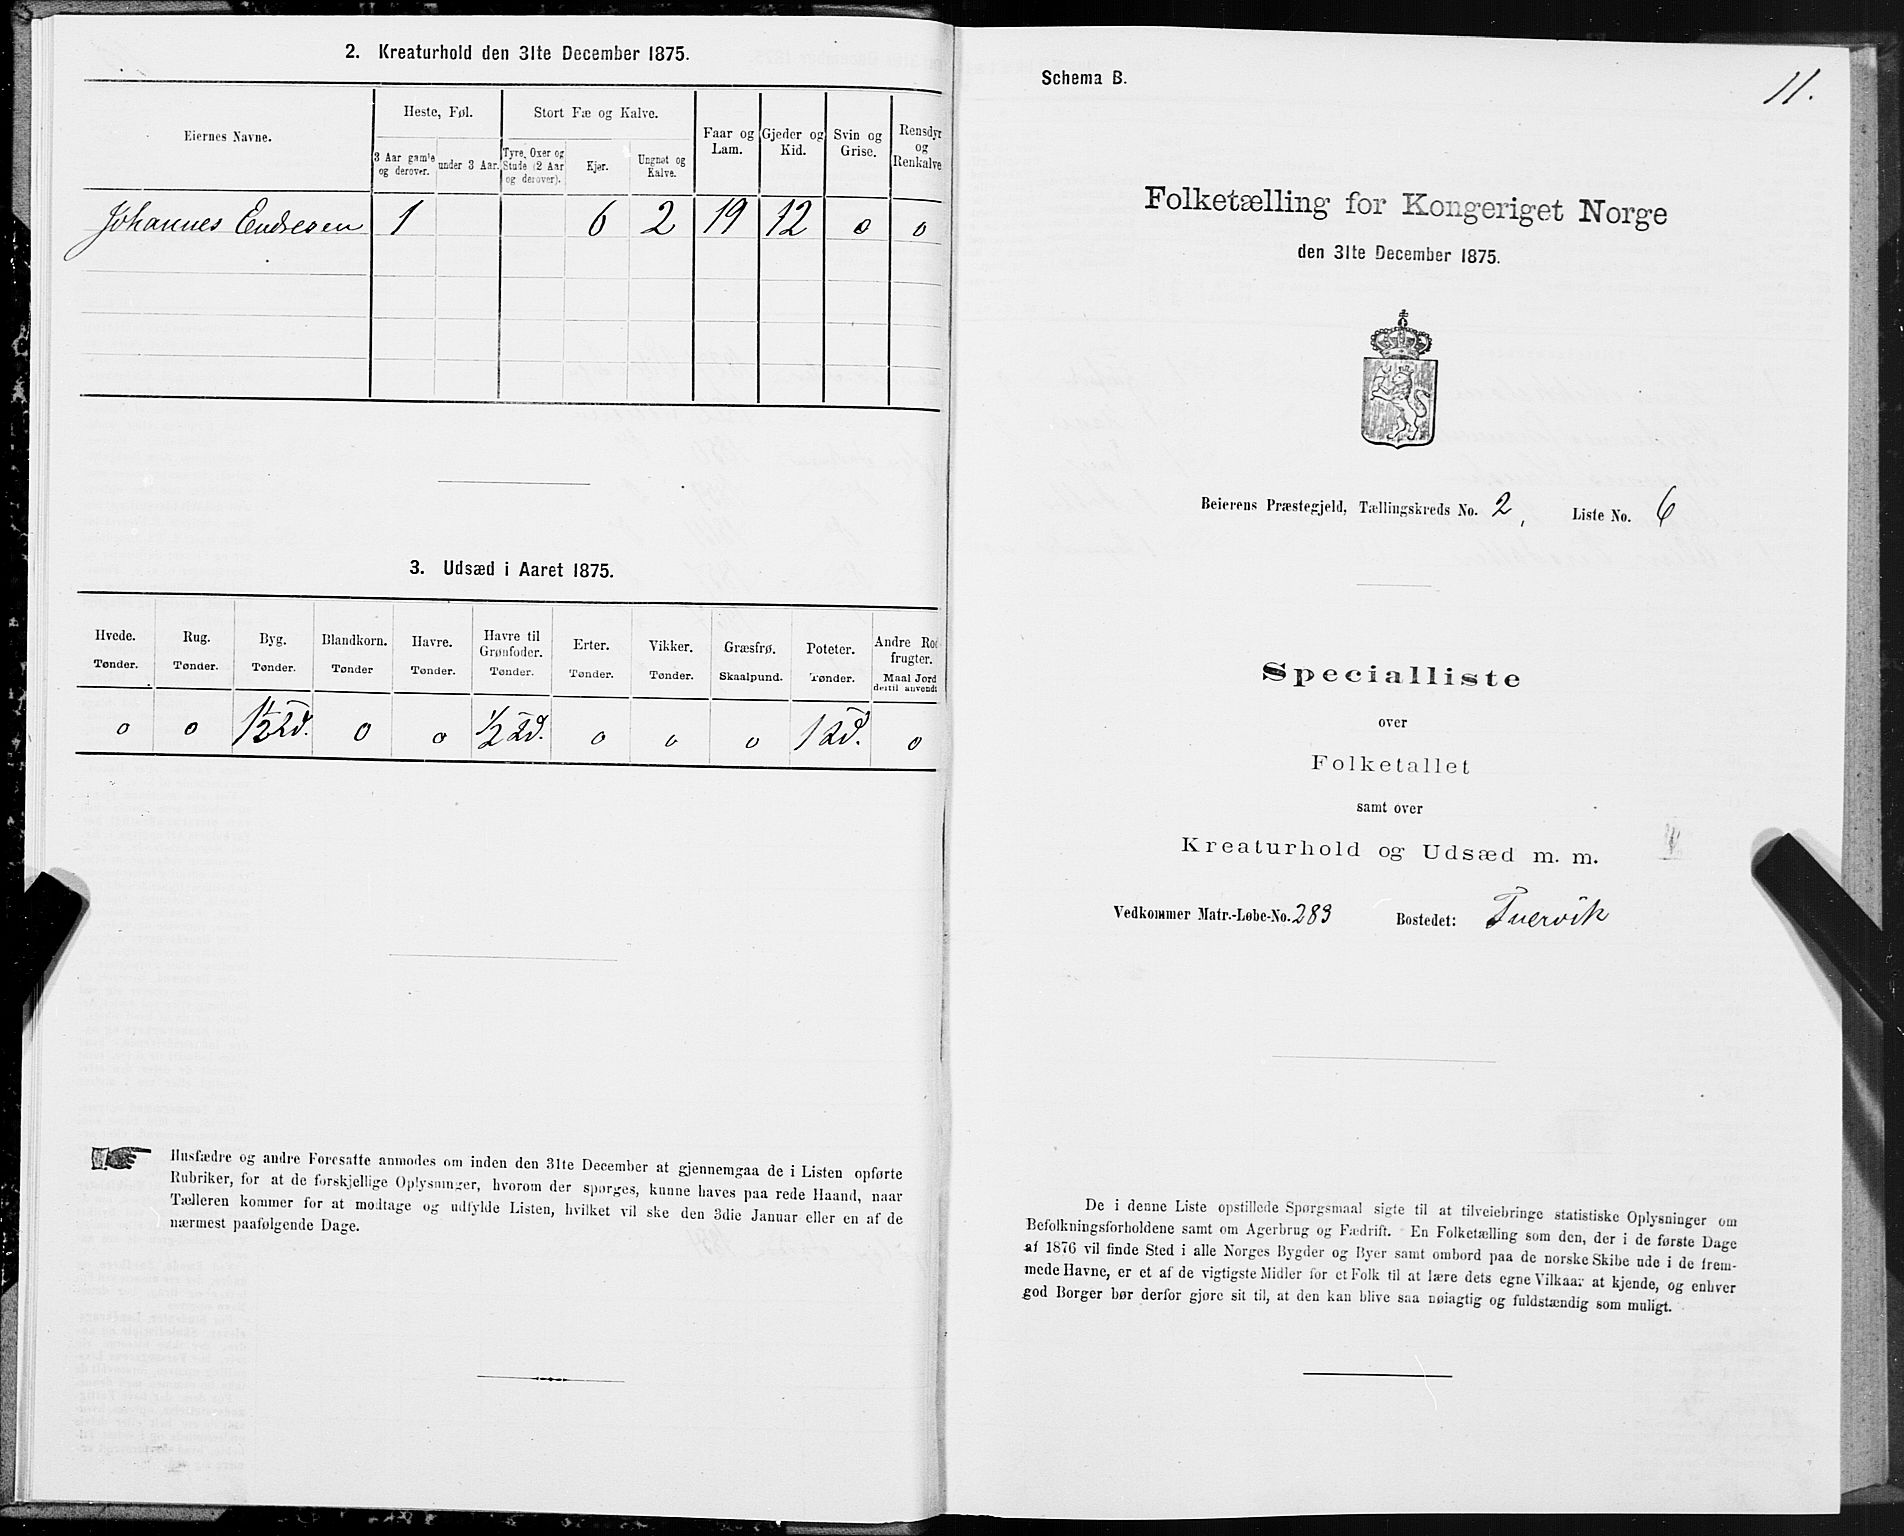 2. Kreaturhold den 31te December 1875.
Eiernes Navne.
Heste, Føl.
3 Aar gamle og derover.
under 3 Aar.
Stort Fæ og Kalve.
Tyre, Oxer og Stude (2 Aar og derover).
Kjør.
Ungnøt og Kalve.
Faar og Lam.
Gjeder og Kid.
Svin og Grise.
Rensdyr og Renkalve
Johannes Endresen 1 6 2 19 12 0 0
3. Udsæd i Aaret 1875.
Hvede. Rug. Byg. Blandkorn. Havre. Havre til Grønfoder. Erter. Vikker. Græsfrø. Poteter. Andre Rodfrugter.
Tønder. Tønder. Tønder. Tønder Tønder. Tønder. Tønder. Tønder. Skaalpund. Tønder. Maal Jord dertil anvendt
0 0 1½ Td. 0 0 ½ Td. 0 0 0 1 Td. 0
Husfædre og andre Foresatte anmodes om inden den 31te December at gjennemgaa de i Listen opførte
Rubriker, for at de forskjellige Oplysninger, hvorom der spørges, kunne haves paa rede Haand, naar
Tælleren kommer for at modtage og udfylde Listen, hvilket vil ske den 3die Januar eller en af de
nærmest paafølgende Dage.
Schema B.
11.
Folketælling for Kongeriget Norge
den 31te December 1875.
Beierens Præstegjeld, Tællingskreds No. 2, Liste No. 6
Specialliste
over
Folketallet
samt over
Kreaturhold og Udsæd m. m.
Vedkommer Matr.-Løbe-No. 283 Bostedet: Tvervik
De i denne Liste opstillede Spørgsmaal sigte til at tilveiebringe statistiske Oplysninger om
Befolkningsforholdene samt om Agerbrug og Fædrift. En Folketælling som den, der i de første Dage
af 1876 vil finde Sted i alle Norges Bygder og Byer samt ombord paa de norske Skibe ude i de frem-
mede Havne, er et af de vigtigste Midler for et Folk til at lære dets egne Vilkaar at kjende, og enhver
god Borger bør derfor gjøre sit til, at den kan blive saa nøiagtig og fuldstændig som muligt.